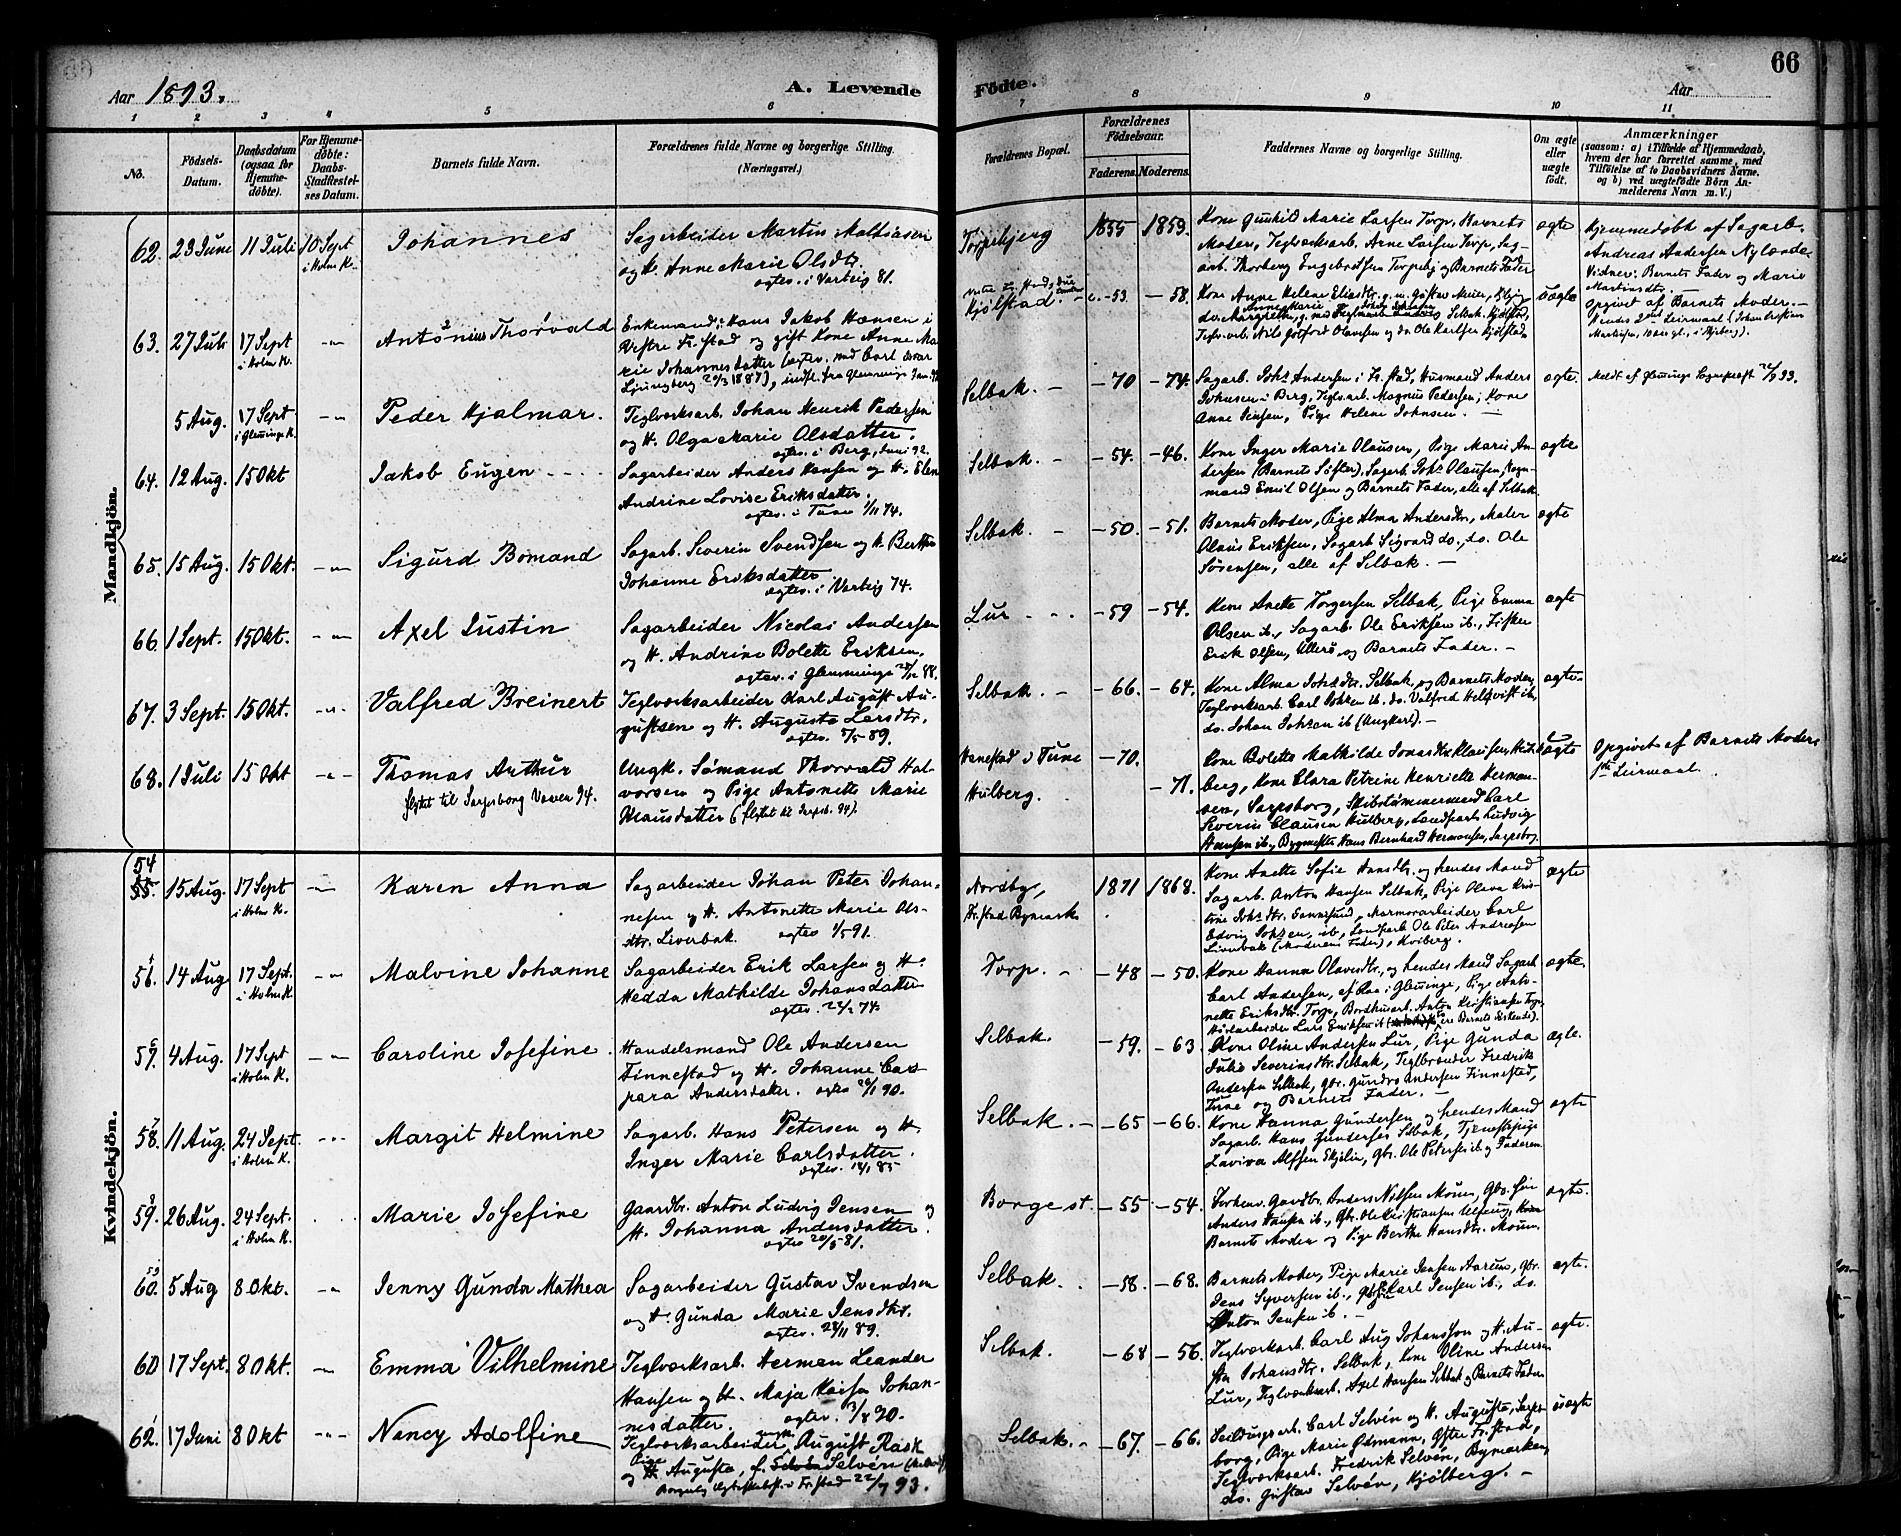 Aar 1893.
A. Levende
1 2 3 4 5 6
No.
Födsels-Datum.
Daabsdatum (ogsaa for Hjemmedöbte).
For Hjemmedöbte: Daabs-Stadfæstelses Datum.
Barnets fulde Navn.
Forældrenes fulde Navne og borgerlige Stilling. (Næringsvei.)
Mandkjön.
62. 23 Juni 11 Juli 10 Sept i Holm K. Johannes
Sagarbeider Martin Mathiasen
og H. Anne Marie Olsdtr.
egtev. i Varteig 81.
63. 27 Juli 17 Sept i Holm K. Antonius Thorvald
Enkemand: Hans Jakob Hansen i
Vestre Fr.stad og gift Kone Anne Ma-
rie Johannesdatter (egtev. med Carl
Ljungberg 20/3 1887), indfl. fra Glemminge
5 Aug. 17 Sept i Glemminge K. Peder Hjalmar.
Teglværksarb. Johan Henrik Pedersen
og H. Olga Marie Olsdatter.
egtev. i Berg, Juni 92.
64. 12 Aug. 15 Okt Jakob Eugen
Sagarbeider Anders Hansen og H. Elen
Andrine Lovise Eriksdatter.
egtev. i Tune 1/11 74.
65. 15 Aug. 15 Okt. Sigurd Bomand
Sagarb. Severin Svendsen og H. Berthe
Johanne Eriksdatter
egtev. i Varteig 74.
66. 1 Sept. 15 Okt. Axel Justin
Sagarbeider Nicolai Andersen
og H. Andrine Bolette Eriksen.
egtev. i Glemminge 28/12 88.
67. 3 Sept. 15 Okt. Valfred Breinert
Teglværksarbeider Karl August Au-
gustsen og H. Augusta Larsdtr.
egtev. 5/5 89.
68. 1 Juli 15 Okt Thomas Arthur
flyttet til Sarpsborg Vaaren 94.
Ungk. Sömand Thorvald Hal-
vorsen og Pige Antonette Marie
Klausdatter (flyttet til Sarpsb. 94).
Kvindekjön.
54 55. 15 Aug. 17 Sept i Holm K. Karen Anna
Sagarbeider Johan Peter Johan-
nesen og H. Antonette Marie Ols-
dtr. Liverbak. egtev 1/5 91.
56. 14 Aug 17 Sept. i Holm K. Malvine Johanne
Sagarbeider Erik Larsen og H.
Hedda Mathilde Johansdatter
egtev. 74.
57. 4 Aug. 17 Sept i Holm K. Caroline Josefine.
Handelsmand Ole Andersen
Finnestad og H. Johanne Cas-
para Andersdatter. egtev 90.
58. 11 Aug. 24 Sept. i Holm K. Margit Helmine
Sagarb. Hans Petersen og H.
Inger Marie Carlsdatter.
egtev. 85
59. 26 Aug. 24 Sept. i Holm K. Marie Josefine
Gaardbr. Anton Ludvig Jensen og
H. Johanna Andersdatter.
egtev 20/5 81.
60. 5 Aug 8 Okt. Jenny Gunda Mathea
Sagarbeider Gustav Svendsen
og H. Gunda Marie Jensdtr.
egtev. 28/11 89.
60 17 Sept. 8 Okt. Emma Vilhelmine
Teglværksarb. Herman Leander
Hansen og H. Maja Kaisa Johan-
nesdatter. egtev. 3/8 90.
62. 17 Juni 8 Okt Nancy Adolfine
Teglværksarbeider, August Rask
og Pige Augusta, f. Selvén
Borgerlig Egteskabst. i Fr.stad 22/7 93.
Födte.
66
Aar
7 8 9 10 11
Forældrenes Bopæl.
Forældrenes Födselsaar.
Faderens. Moderens.
Faddernes Navne og borgerlige Stilling.
Om ægte eller uægte födt.
Anmærkninger
(saasom: a) i Tilfælde af Hjemmedaab,
hvem der har forrettet samme, med
Tilföielse af to Daabsvidners Navne.
og b) ved uægtefödte Börn An-
melderens Navn m. V.)
Torpebjerg 1855 1859.
Kone Gunhild Marie Larsen Torp, Barnets
Moder, Teglværksarb. Arne Larsen Torp, Sag-
arb. Thorberg Engebretsen Torpebj. og Barnets Fader
egte
Hjemmedöbt af Sagarb.
Andreas Andersen Nylænde
Vidner: Barnets Fader og Marie
Martinsdtr.
Kjölstad. -53. -58.
Kone Anne Helene Eliasdtr. g. m. Gustav Meier,
Teglv.arb. Nils Gotfred Olaussen og do Ole Karlsen Kjölstad.
uegte
Opgivet af Barnets Moder.
Hendes 2det Leiermaal
Selbak. -70 -74.
Sagarb. Johs Andersen i Fr.stad, Husmand Anders
Johnsen i Berg, Teglv.arb. Magnus Pedersen; Kone
Anne Jensen, Pige Helene Johnsen.
egte.
Meldt af Glemminge Sognepræst 93.
Selbak. -54. -46.
Kone Inger Marie Olausen, Pige Marie An-
dersen (Barnets Söster), Sagarb. Johs Olausen,
mand Emil Olsen og Barnets Fader, alle af Selbak.
egte
Selbak. -50. -51.
Barnets Moder, Pige Alma Andersdtr., Maler
Olaus Eriksen, Sagarb Sigvard do., do. Ole
Sörensen, alle af Selbak.
egte
Lur -59 -54.
Kone Anette Torgersen Selbak, Pige Emma
Olsen ib., Sagarb. Ole Eriksen ib., Fisker
Erik Olsen, Ullerö og Barnets Fader.
egte
Selbak. -66. -64.
Kone Alma Johsdtr. Selbak, og Barnets Moder,
Teglværksarb. Carl Johsen ib. do. Valfred Hellqvist ib,
do. Johan Johsen ib (Ungkarl).
egte.
Hanestad i Tune -70.
Hulberg. -71.
Kone Bolette Mathilde Jonasdtr. Klausen, Hul-
berg, Kone Clara Petrine Henriette Herman-
sen, Sarpsborg, Skibstömmermand Carl
Severin Clausen Hulberg, Landpatr. Ludvig
Hansen ib. og Bygmester Hans Bernhard Hermansen, Sarpsborg.
uegte
Opgivet af Barnets Moder
1ste Leiermaal.
Nordby, Fr.stad Bymark 1871 1868.
Kone Anette Sofie Hansdtr. og hendes Mand
Sagarb. Anton Hansen Selbak, Pige Olava Kris-
tine Johsdtr. Gannesund, Marmorarbeider Carl
Edvin Johsen, ib., Landpatr. Ole Peter Andreasen
Liverbak (Moderens Fader), Kviberg.
egte
Torp. -48 -50.
Kone Hanna Olavesdtr., og hendes Mand Sagarb
Carl Andersen, af Raa i Glemminge, Pige Anto-
nette Eriksdtr. Torp, Bordhusarb. Anton Kristiansen Torp,
arbeider Lars Eriksen ib
egte.
Selbak. -59. -63
Kone Oline Andersen Lur, Pige Gunda
Julie Severinsdtr. Selbak, Teglbrænder Fredrik
Andersen Selbak, Gbr. Gundro Andersen Finnestad,
Tune og Barnets Fader.
egte.
Selbak. -65 -66.
Kone Hanna Gundersen og hendes Mand
Sagarb. Hans Gundersen Selbak, Tjenestepige
Laviva Alfsen Skjelin, Gbr. Ole Petersen ib. og Faderen.
egte
Borge st. -55 -54.
Forhenv. Gaardbr. Anders Nilsen Moum, Gbr. Sön
Anders Hansen ib., Gbr. Ole Kristiansen
Barnets Moder og Pige Berthe Hansdtr. Moum.
egte.
Selbak. -58. -68.
Barnets Moder, Pige Marie Jensen Aarum, Gbr.
Jens Syversen ib., Carl Jensen ib., do.
Anton Jensen ib.
egte.
Selbak. -68 -56.
Teglværkarb. Carl Aug Johansson og H. Au-
sta Johansdtr. Selbak, Kone Oline Andersen
Lur, Teglværksarb. Axel Hansen Selbak og Barnets Fader
egte.
Selbak. -67. -66.
Carl Selvén og H. Augusta, Sarps-
borg, Pige Marie Ödmann, Öster Fr.stad,
Teglværksarb. Fredrik Selvén, Bymarken,
do. Gustav Selvén, Kjölberg.
uegte